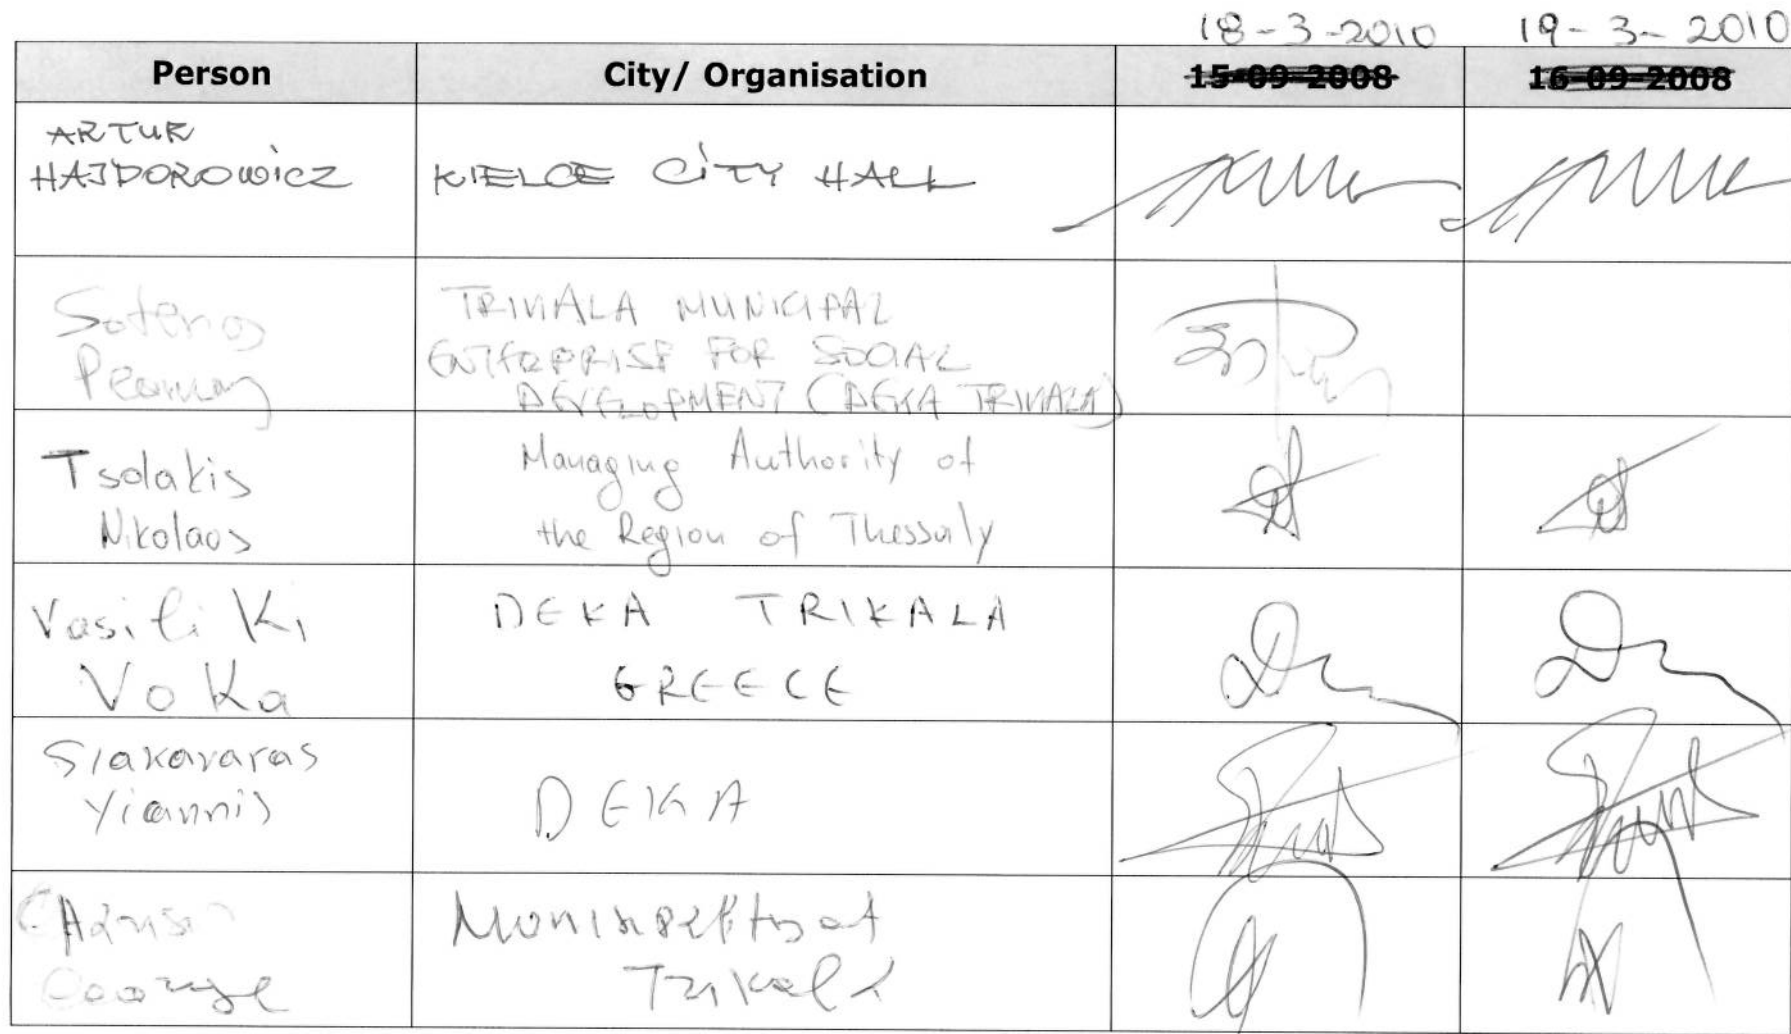 18-3-2010 19-3-2010
Person City/ Organisation 15-09-2008 16-09-2008
ARTUR
HAJDOROWICZ KIELCE CITY HALL
Soterios TRIKALA MUNICIPAL
ENTERPRISE FOR SOCIAL
DEVELOPMENT (DEKA TRIKALA)
Tsolakis Managing Authority of
Nikolaos the Region of Thessaly
Vasiliki DEKA TRIKALA
Voka GREECE
Siakavaras
Yiannis DEKA
George Trikala